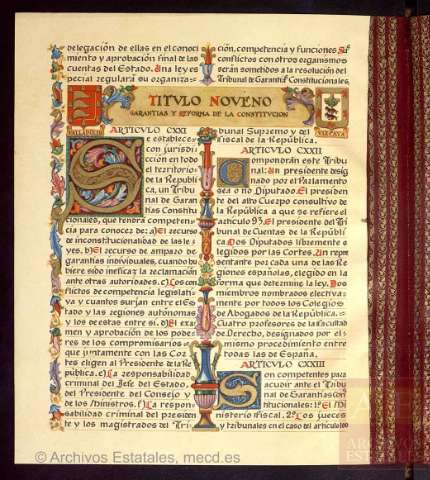 delegación de ellas en el conoci
miento y aprobación final de las
cuentas del Estado. Una ley es
pecial regulará su organiza
ción, competencia y funciones. Sus
conflictos con otros organismos
serán sometidos a la resolución del
Tribunal de Garantías Constitucionales.
TITVLO NOVENO
GARANTIAS Y REFORMA DE LA CONSTITVCION
VALLADOLID
VIZCAYA
ARTICULO CXXI
Se establece,
con jurisdic
ción en todo
el territorio
de la Repúbli
ca, un Tribu
nal de Garan
tías Constitu
cionales, que tendrá competen
cia para conocer de: a). El recurso
de inconstitucionalidad de las le
yes. b). El recurso de amparo de
garantías individuales, cuando hu
biere sido ineficaz la reclamación
ante otras autoridades. c). Los con
flictos de competencia legislati
va y cuantos surjan entre el Es
tado y las regiones autónomas
y los de éstas entre sí. d). El exa
men y aprobación de los pode
res de los compromisarios
que juntamente con las Cor
tes eligen al Presidente de la Re
pública. e). La responsabilidad
criminal del Jefe del Estado,
del Presidente del Consejo y
de los Ministros. f). La respon
sabilidad criminal del presidente
y los magistrados del Tri
bunal Supremo y del
Fiscal de la República.
ARTICULO CXXII
Compondrán este Tribu
nal: Un presidente desig
nado por el Parlamento
sea o no Diputado. El presiden
te del alto Cuerpo consultivo de
la República a que se refiere el
artículo 93. El presidente del Tri
bunal de Cuentas de la Repúbli
ca. Dos Diputados libremente e
legidos por las Cortes. Un repre
sentante por cada una de las Re
giones españolas, elegido en la
forma que determine la ley. Dos
miembros nombrados electiva
mente por todos los Colegios
de Abogados de la República.
Cuatro profesores de la Facultad
de Derecho, designados por el
mismo procedimiento entre
todas las de España.
ARTICULO CXXIII
Son competentes para
acudir ante el Tribu
nal de Garantías Con
stitucionales: 1º. El Mi
nisterio fiscal. 2º. Los jueces
y tribunales en el caso del artículo 100
© Archivos Estatales, mecd.es
ARCHIVOS
ESTATALES